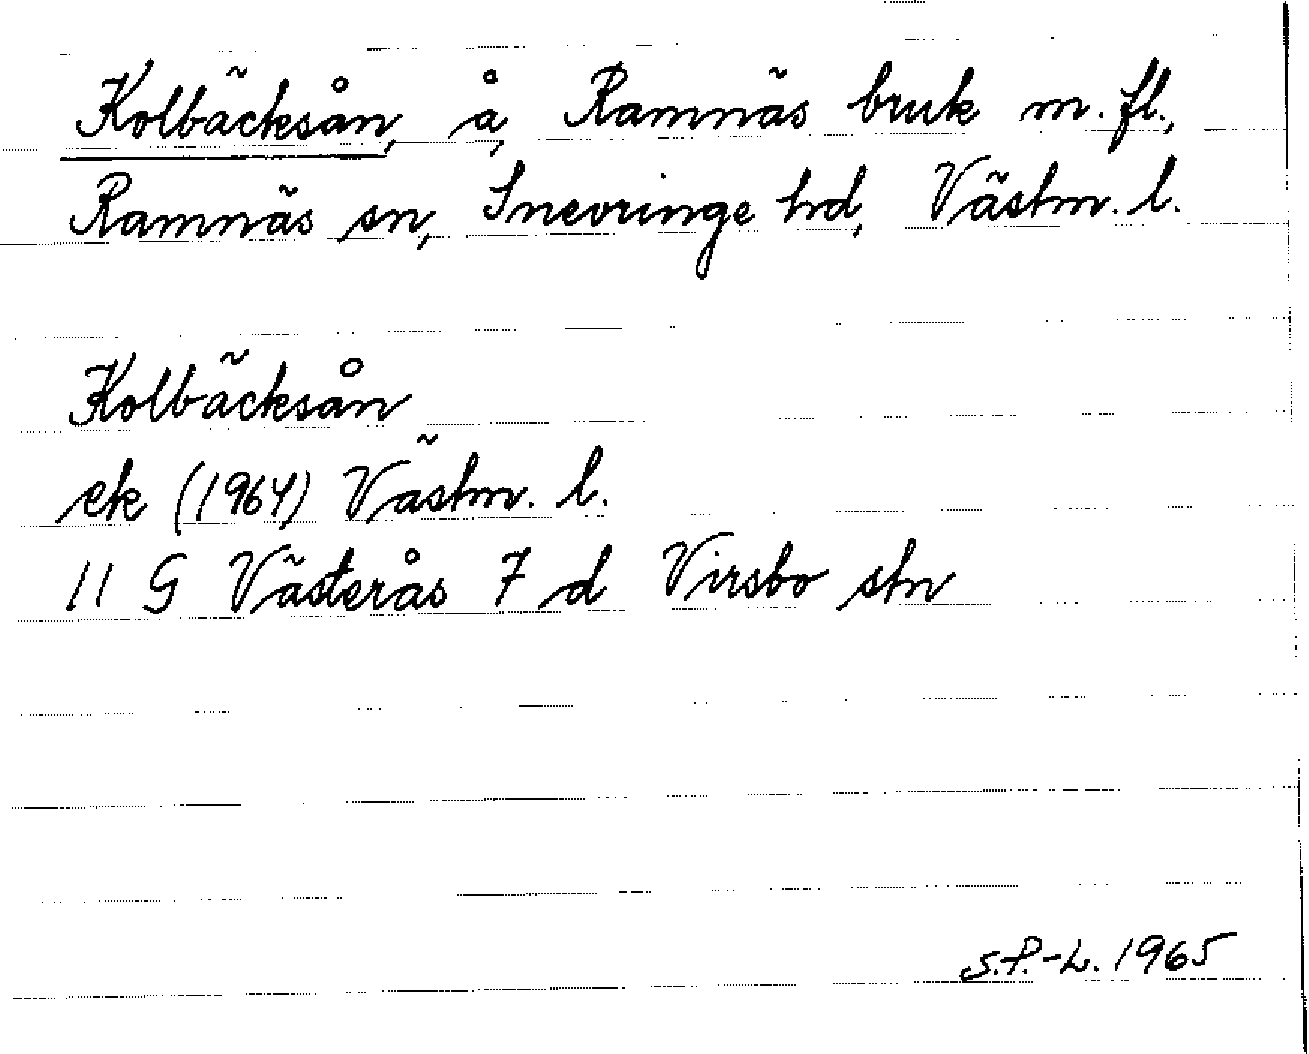 Kolbäcksån, å, Ramnäs bruk m. fl.,
Ramnäs sn, Snevringe hd, Västm. l.
Kolbäcksån
ek (1964) Västm. l.
11 G Västerås 7 d Virsbo stn
S.P.-L. 1965